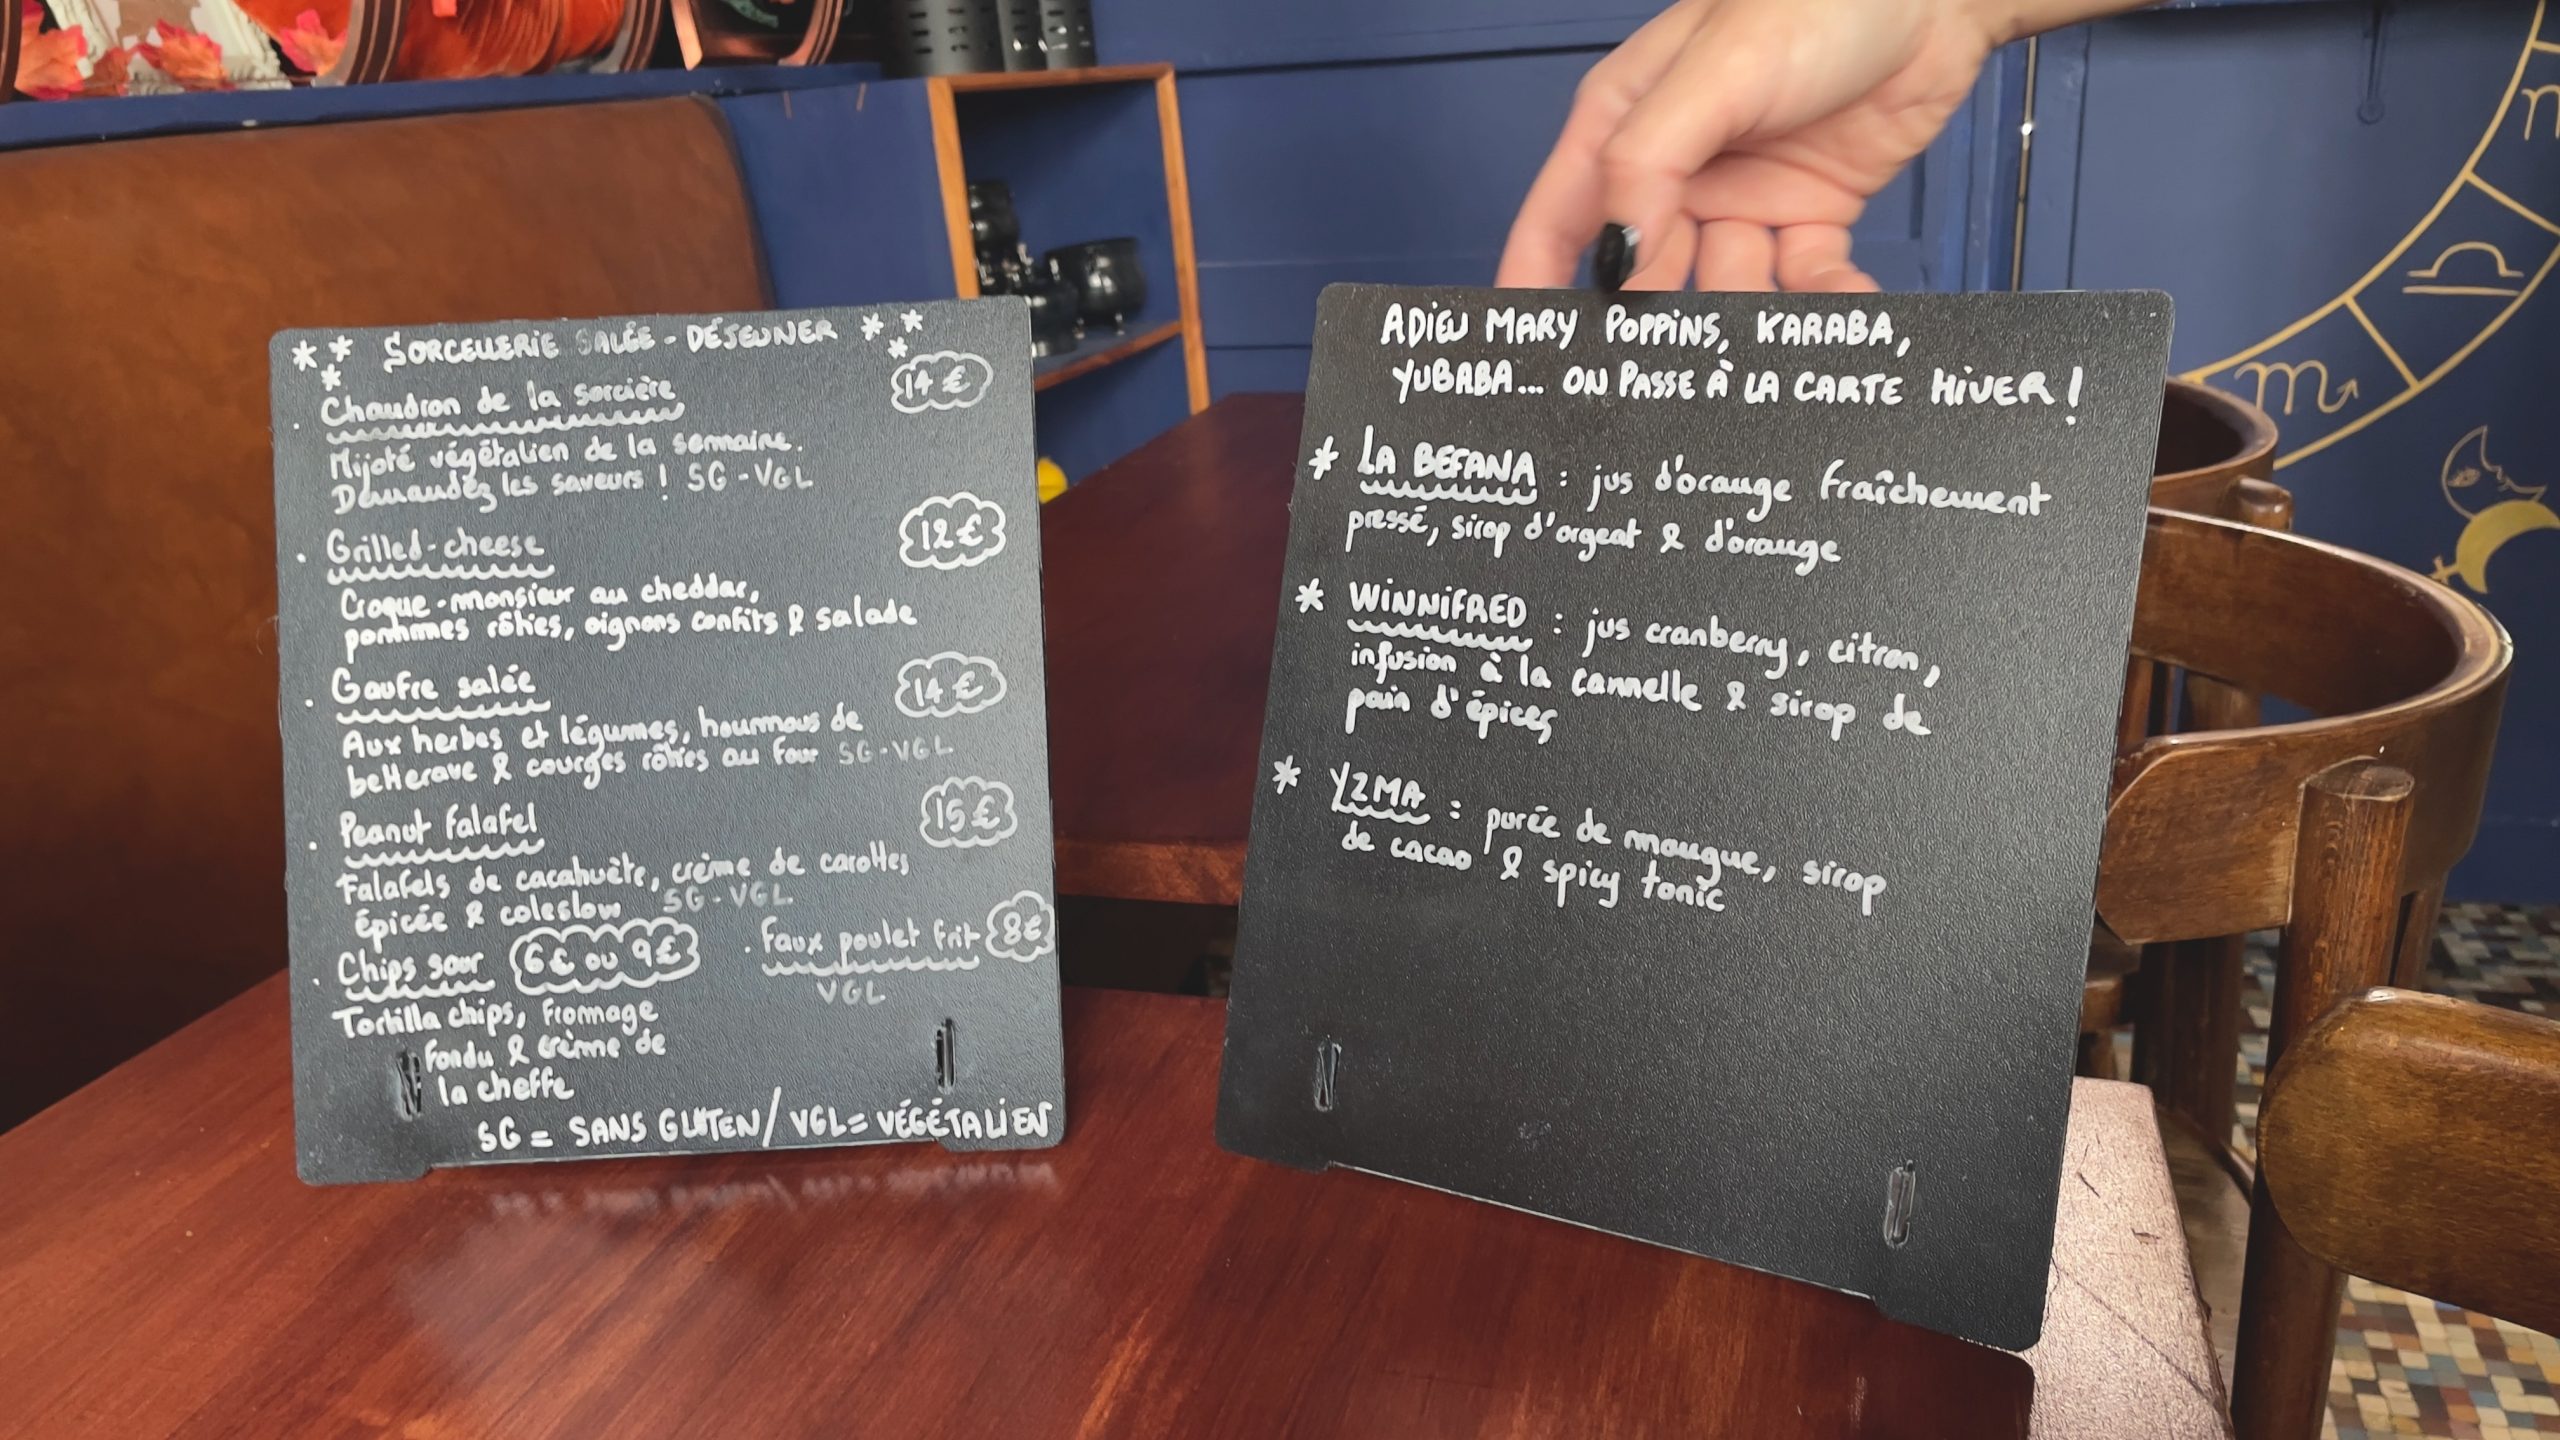 SORCELLERIE SALÉE - DÉJEUNER
. Chaudron de la sorcière 14€
Mijoté végétalien de la semaine.
Demandez les saveurs ! SG - VGL
. Grilled-cheese 12€
Croque-monsieur au cheddar,
pommes rôties, oignons confits & salade
. Gaufre salée 14€
Aux herbes et légumes, houmous de
betterave & courges rôties au four SG-VGL
. Peanut falafel 15€
Falafels de cacahuète, crème de carottes
épicée & coleslow SG-VGL
. Chips sour 6€ ou 9€
Tortilla chips, fromage
fondu & crème de
la cheffe
. Faux poulet frit 8€
VGL
SG = SANS GLUTEN / VGL = VÉGÉTALIEN
ADIEU MARY POPPINS, KARABA,
YUBABA... ON PASSE À LA CARTE HIVER !
* LA BEFANA : jus d'orange fraîchement
pressé, sirop d'orgeat & d'orange
* WINNIFRED : jus cranberry, citron,
infusion à la cannelle & sirop de
pain d'épices
* YZMA : purée de mangue, sirop
de cacao & spicy tonic